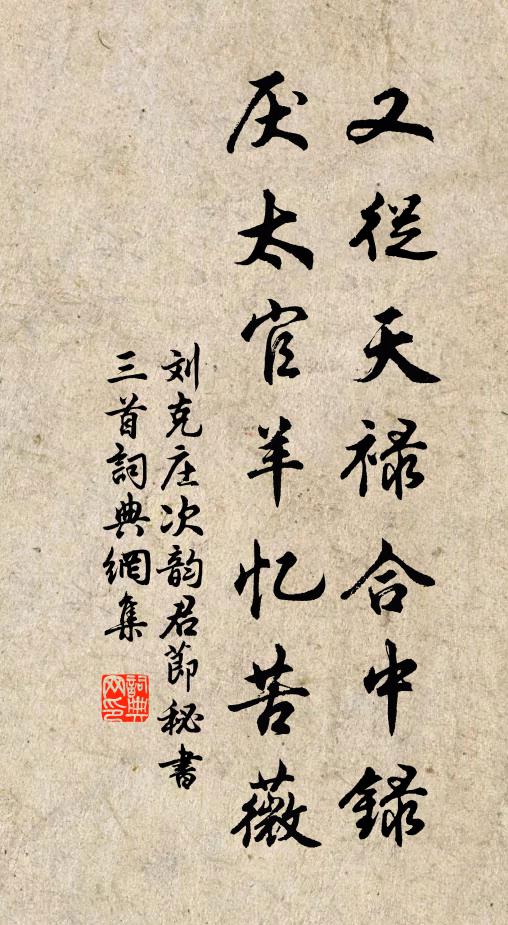 又從天禄合中録
厌太官羊忆苦薇
刘克庄次韵君節秘書
三首詞典網集
詞典
网印